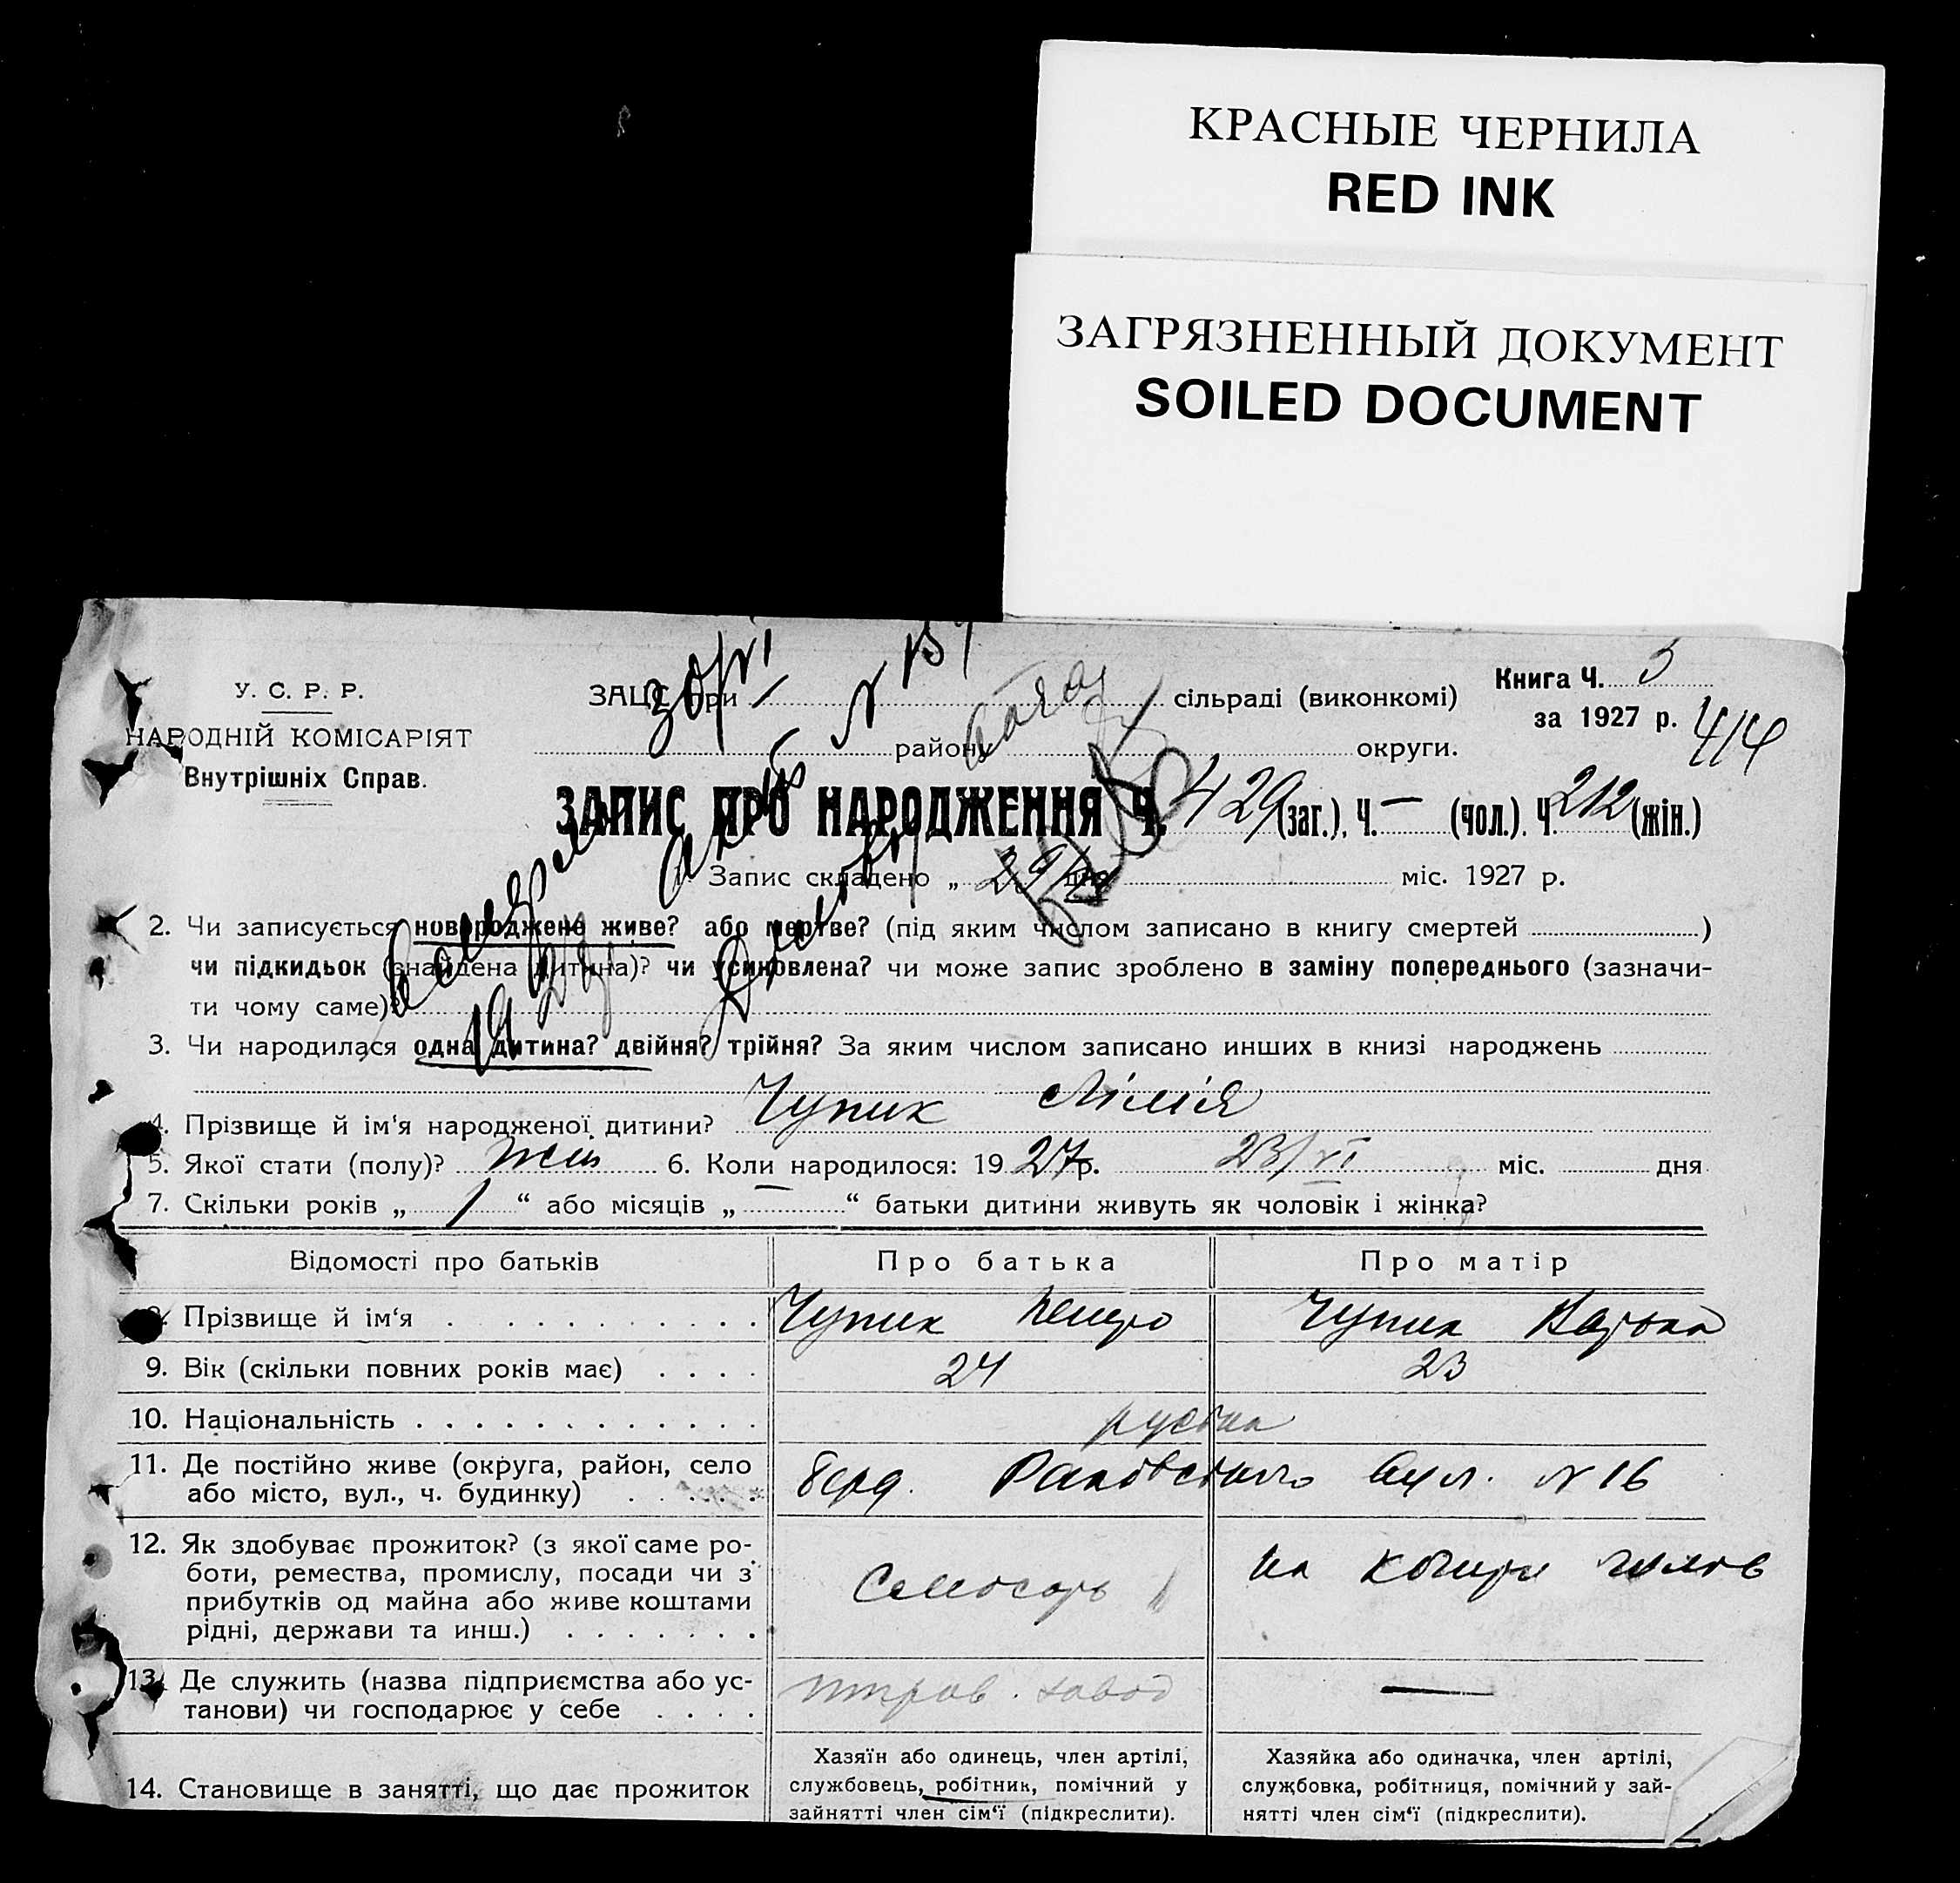 КРАСНЫЕ ЧЕРНИЛА
RED INK
ЗАГРЯЗНЕННЫЙ ДОКУМЕНТ
SOILED DOCUMENT
Книга Ч. 5
за 1927 р. 414
У. С. Р. Р.
НАРОДНІЙ КОМІСАРІЯТ
Внутрішніх Справ.
ЗАЦС при сільраді (виконкомі)
району округи.
30/VI
ЗАПИС ПРО НАРОДЖЕННЯ Ч. 429 (заг.), Ч. — (чол.). Ч. 212 (жін.)
1. Запис складено „ 29/VI дня міс. 1927 р.
2. Чи записується новороджене живе? або мертве? (під яким числом записано в книгу смертей )
чи підкидьок (знайдена дитина)? чи усиновлена? чи може запис зроблено в заміну попереднього (зазначи-
ти чому саме)?
3. Чи народилася одна дитина? двійня? трійня? За яким числом записано инших в книзі народжень
4. Прізвище й ім‘я народженої дитини? Чупик Лілія
5. Якої стати (полу)? жін 6. Коли народилося: 1927р. 23/VI міс. дня
7. Скільки років „ 1 “ або місяців „ — “ батьки дитини живуть як чоловік і жінка?
Відомості про батьків Про батька Про матір
8. Прізвище й ім‘я Чупик Петро Чупик
9. Вік (скільки повних років має) 24 23
10. Національність
11. Де постійно живе (округа, район, село Берд. Раковского вул. № 16
або місто, вул., ч. будинку)
12. Як здобуває прожиток? (з якої саме ро-
боти, ремества, промислу, посади чи з Слюсарь на
прибутків од майна або живе коштами
рідні, держави та инш.)
13. Де служить (назва підприємства або ус- завод —
танови) чи господарює у себе
14. Становище в занятті, що дає прожиток
Хазяїн або одинець, член артілі,
службовець, робітник, помічний у
зайнятті член сім‘ї (підкреслити).
Хазяйка або одиначка, член артілі,
службовка, робітниця, помічний у зай-
нятті член сім‘ї (підкреслити).